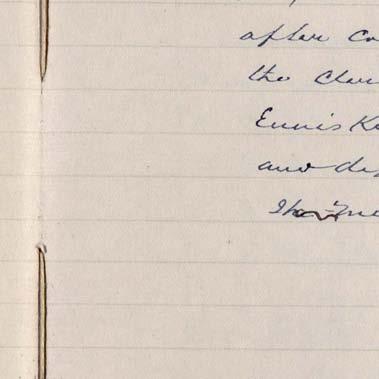 after co
the Cler
Ennis Ke
and de
The